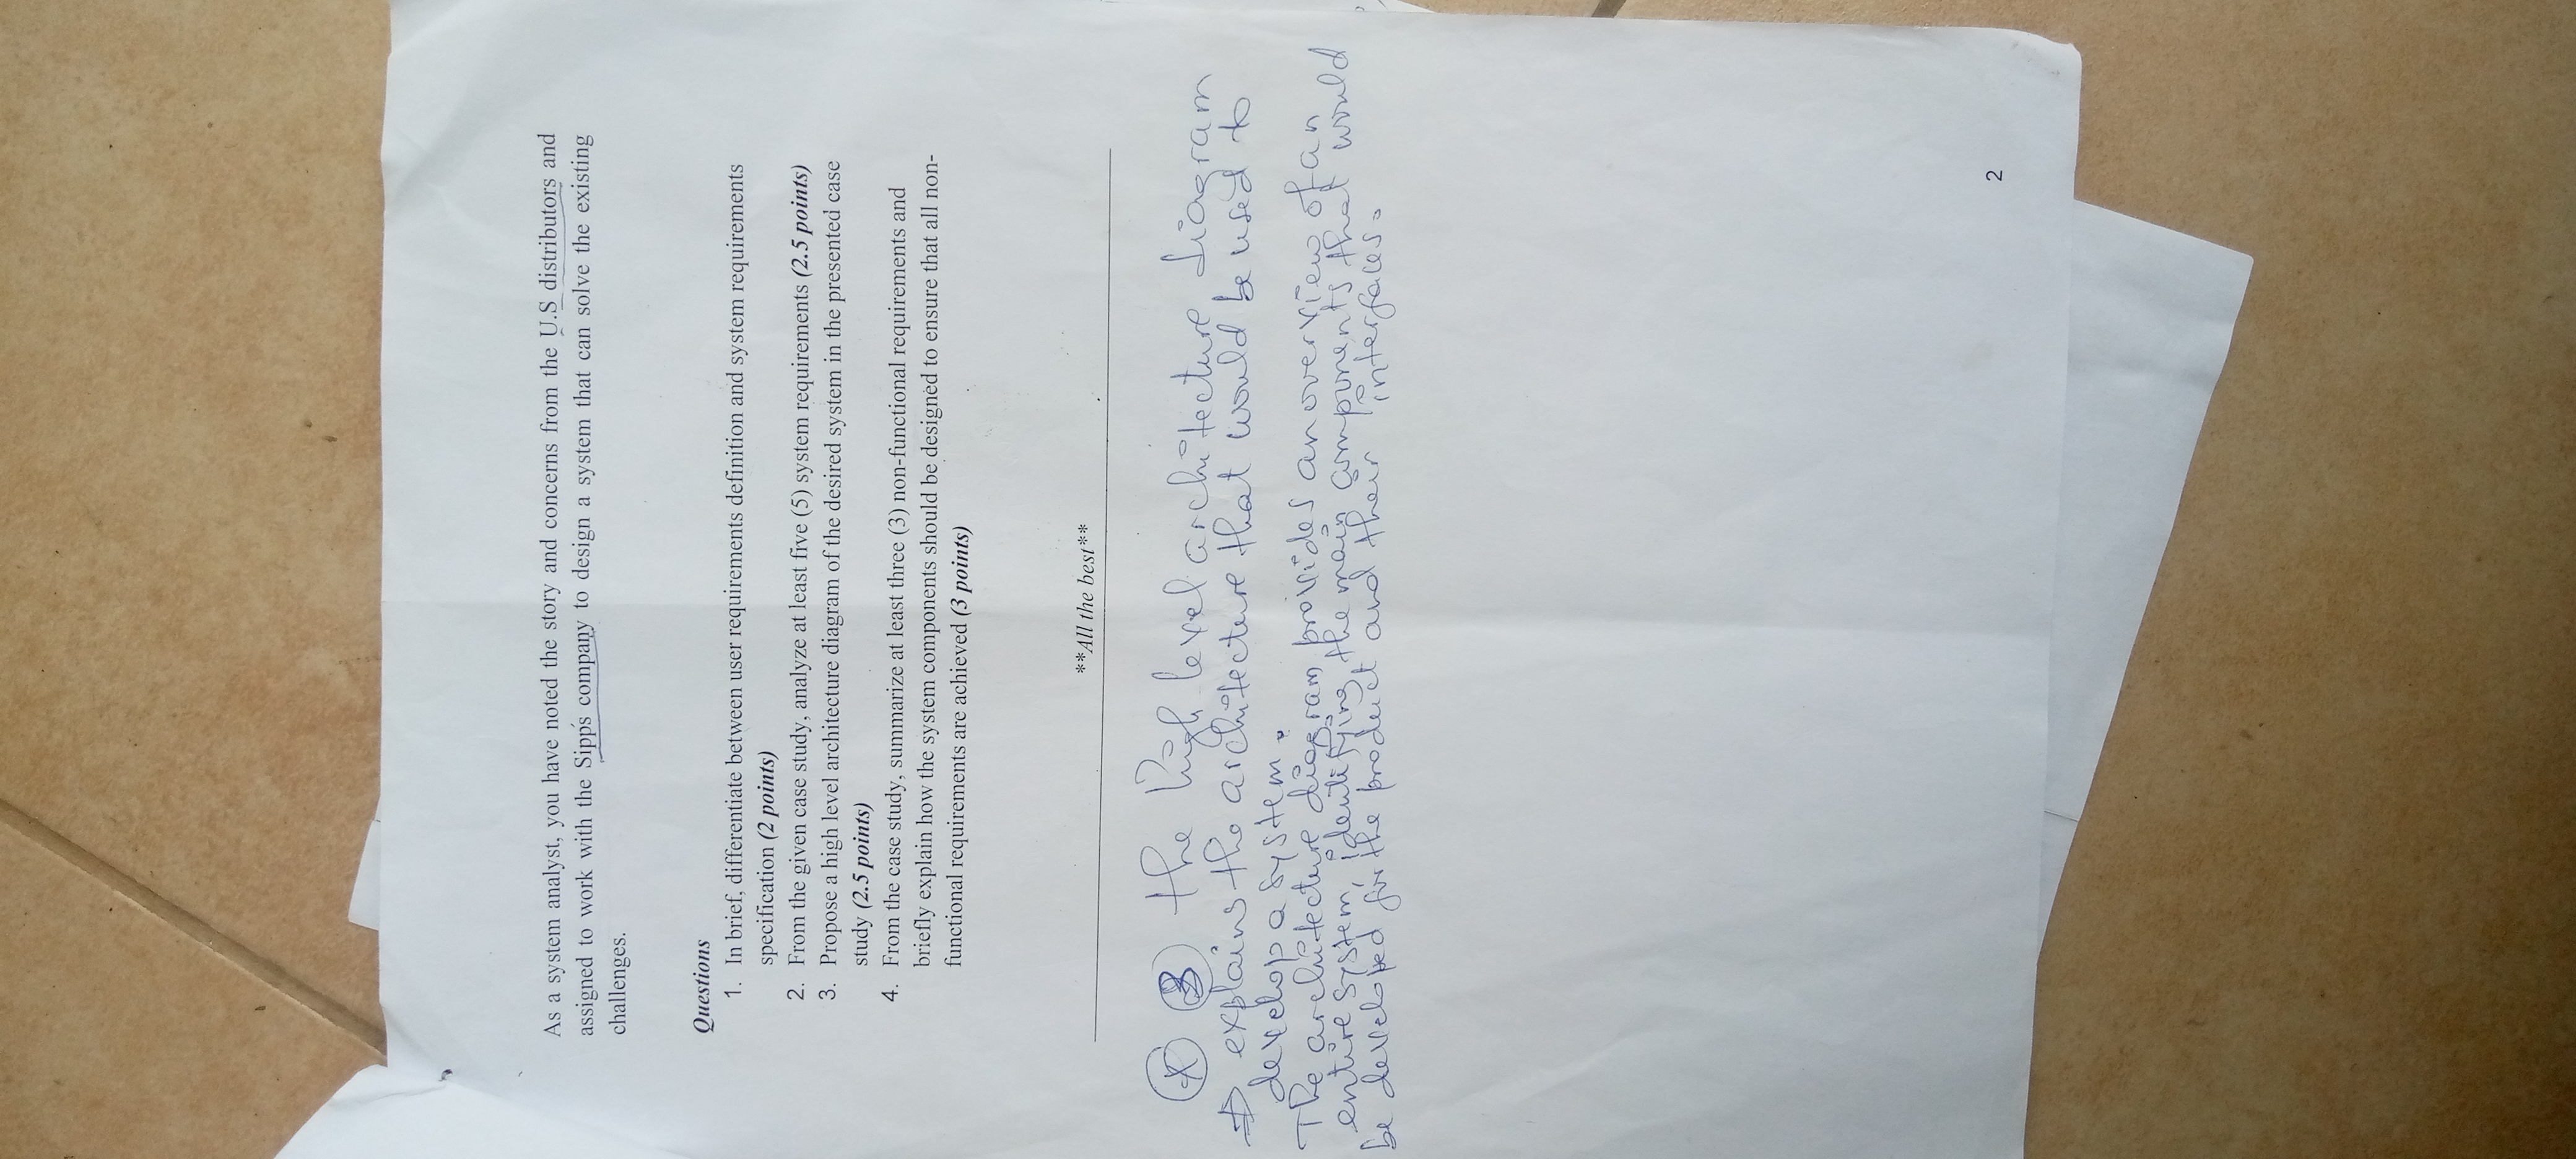 As a system analyst, you have noted the story and concerns from the U.S distributors and
assigned to work with the Sipp's company to design a system that can solve the existing
challenges.
Questions
1. In brief, differentiate between user requirements definition and system requirements
specification (2 points)
2. From the given case study, analyze at least five (5) system requirements (2.5 points)
3. Propose a high level architecture diagram of the desired system in the presented case
study (2.5 points)
4. From the case study, summarize at least three (3) non-functional requirements and
briefly explain how the system components should be designed to ensure that all non-
functional requirements are achieved (3 points)
**All the best**
3 the high level architecture diagram
⇒ explains the architecture that would be used to
develop a system.
The architecture diagram provides an overview of an
entire system, identifying the main components that would
be developed for the product and their interfaces.
2